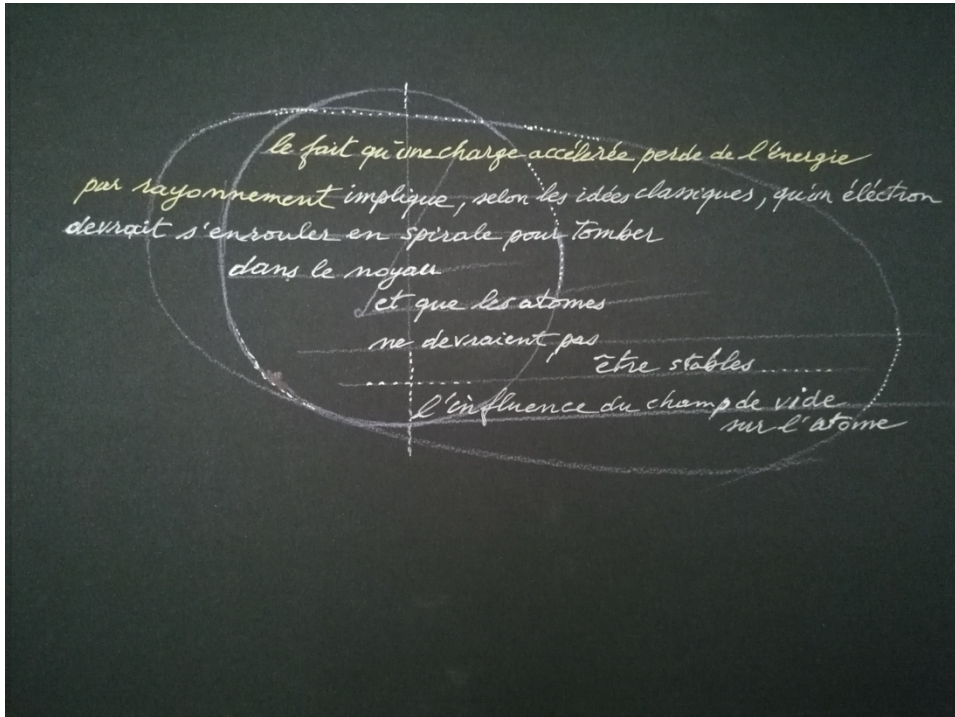 le fait qu'une charge accélérée perde de l'énergie
par rayonnement implique, selon les idées classiques, qu'un éléctron
devrait s'enrouler en spirale pour tomber
dans le noyau
et que les atomes
ne devraient pas
être stables ......
..........
l'influence du champ de vide
sur l'atome